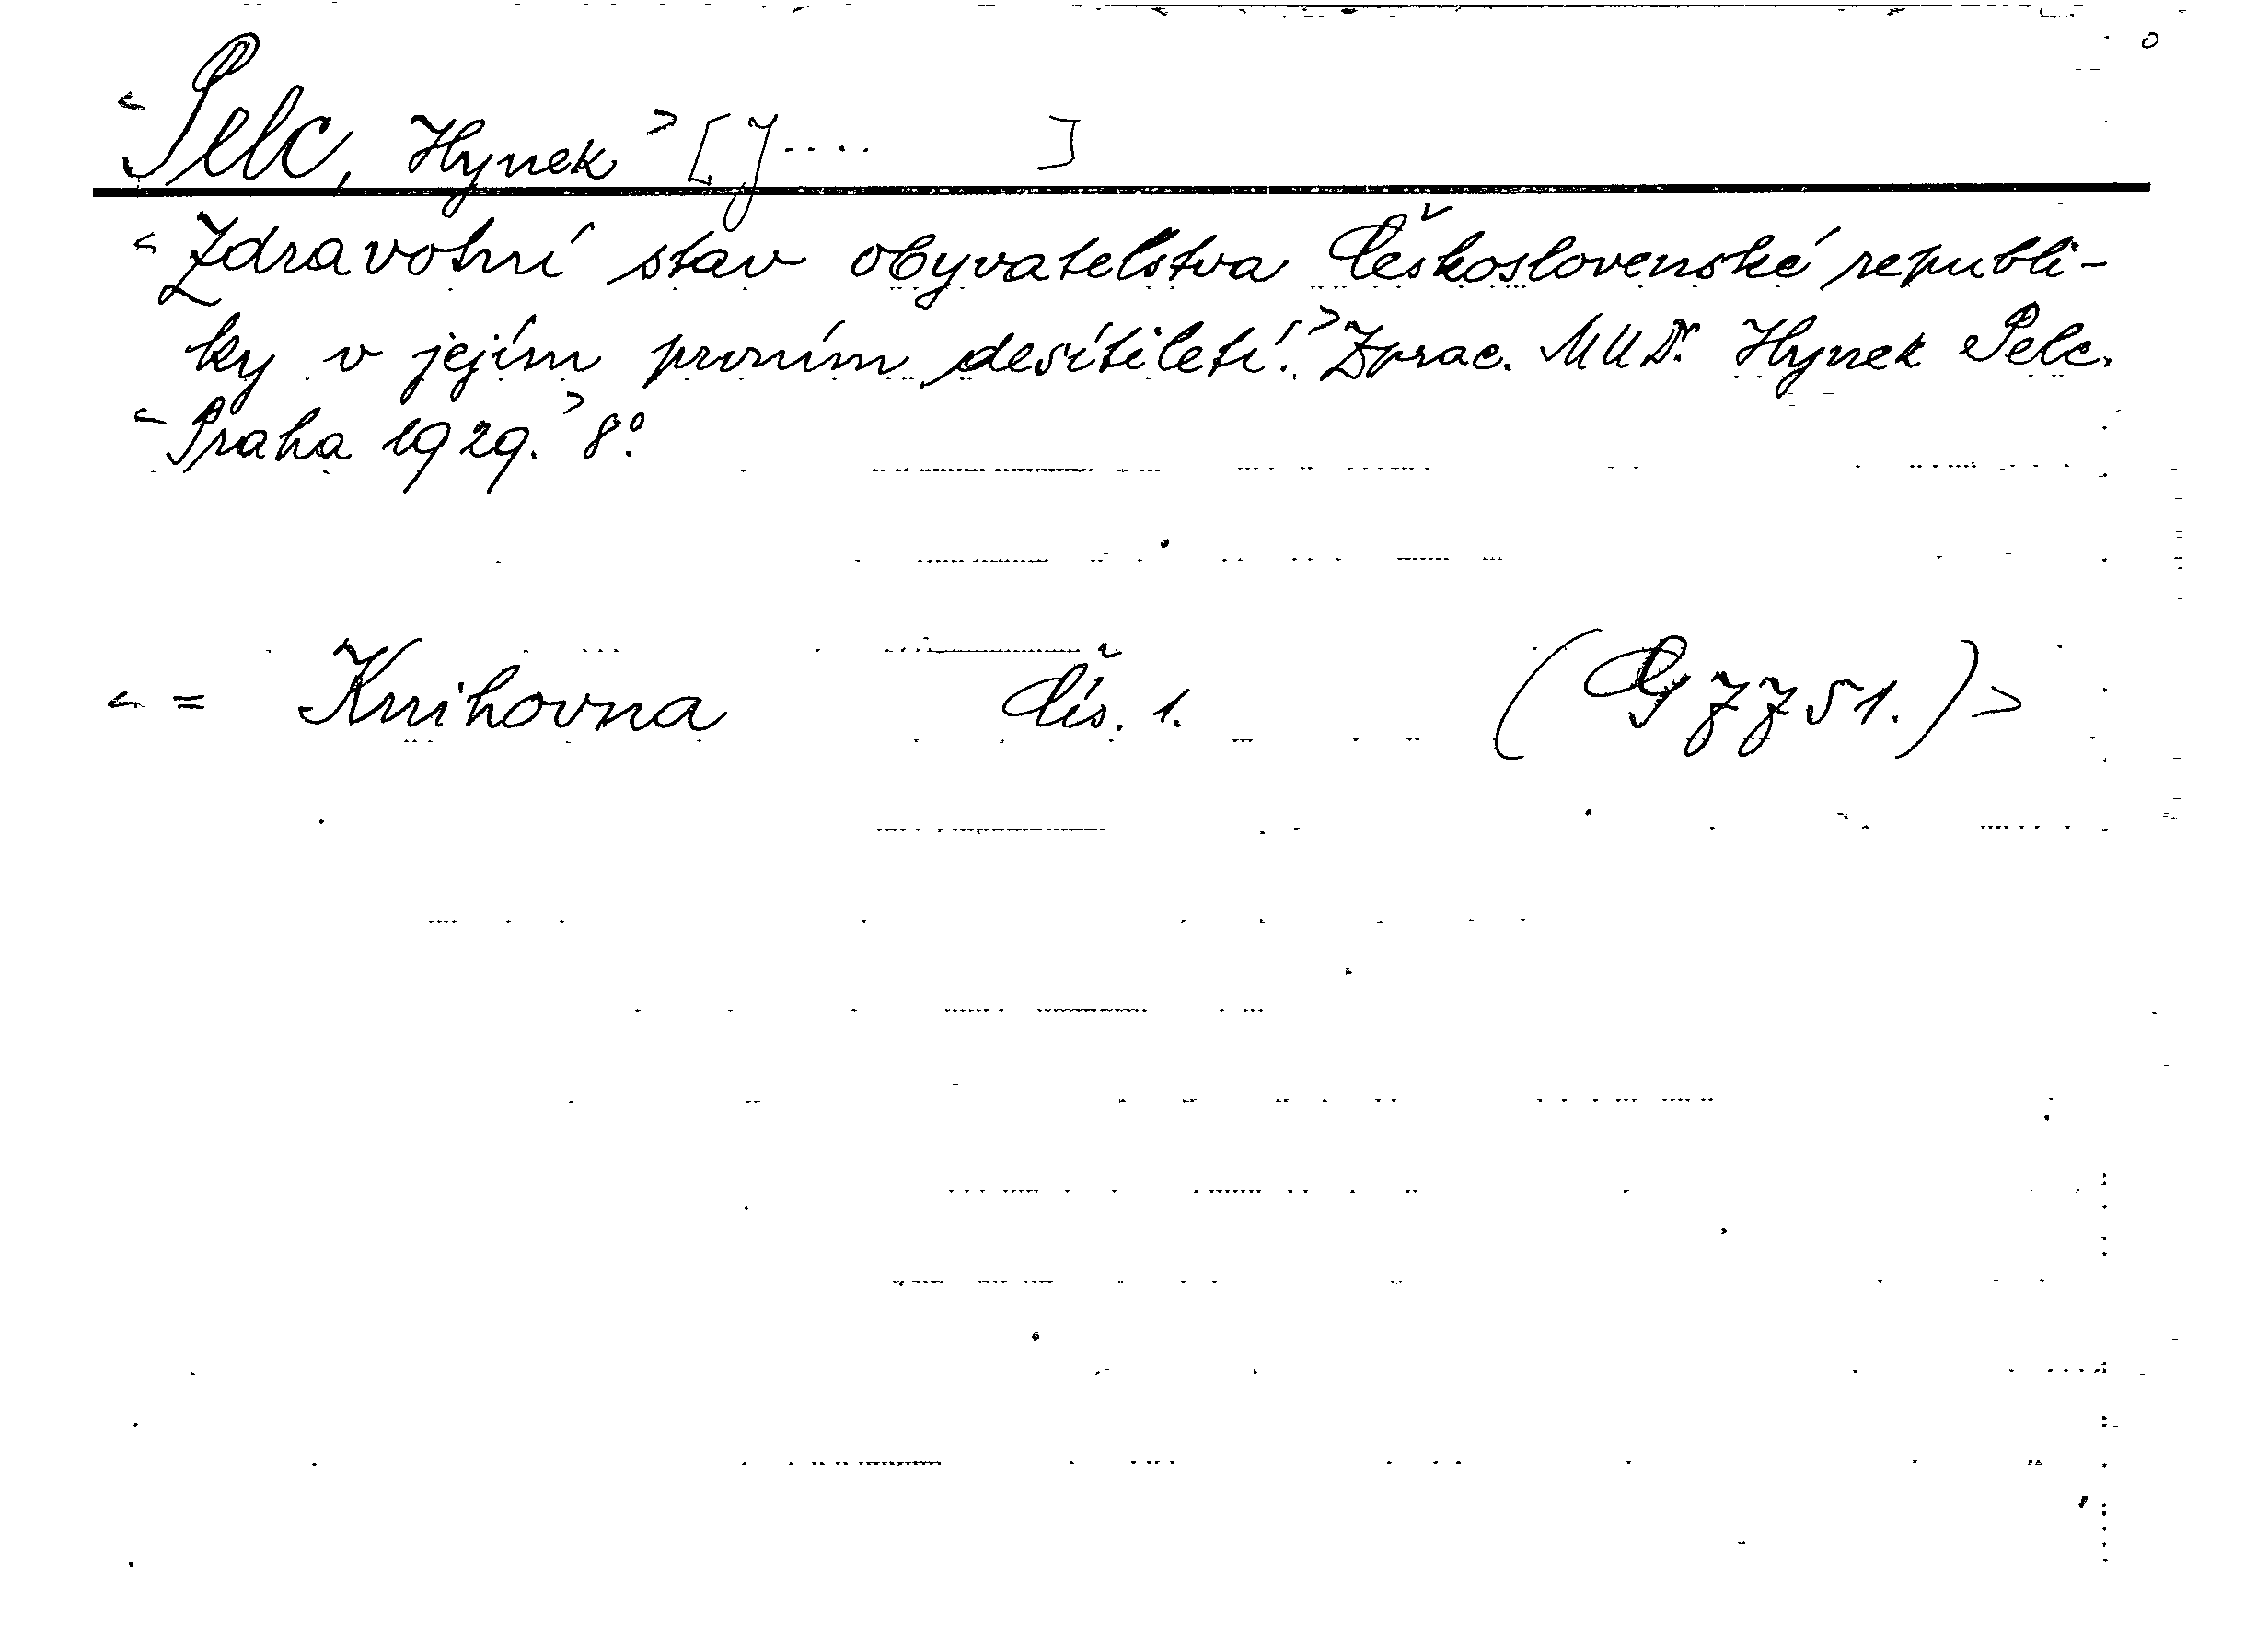 <Pelc, Hynek> [J.... ]
<Zdravotní stav obyvatelstva Československé republi-
ky v jejím prvním desítiletí.> Zprac. MUDr. Hynek Pelc.
<Praha 1929.> 8°.
<= Knihovna Čís. 1. (G 7751.)>